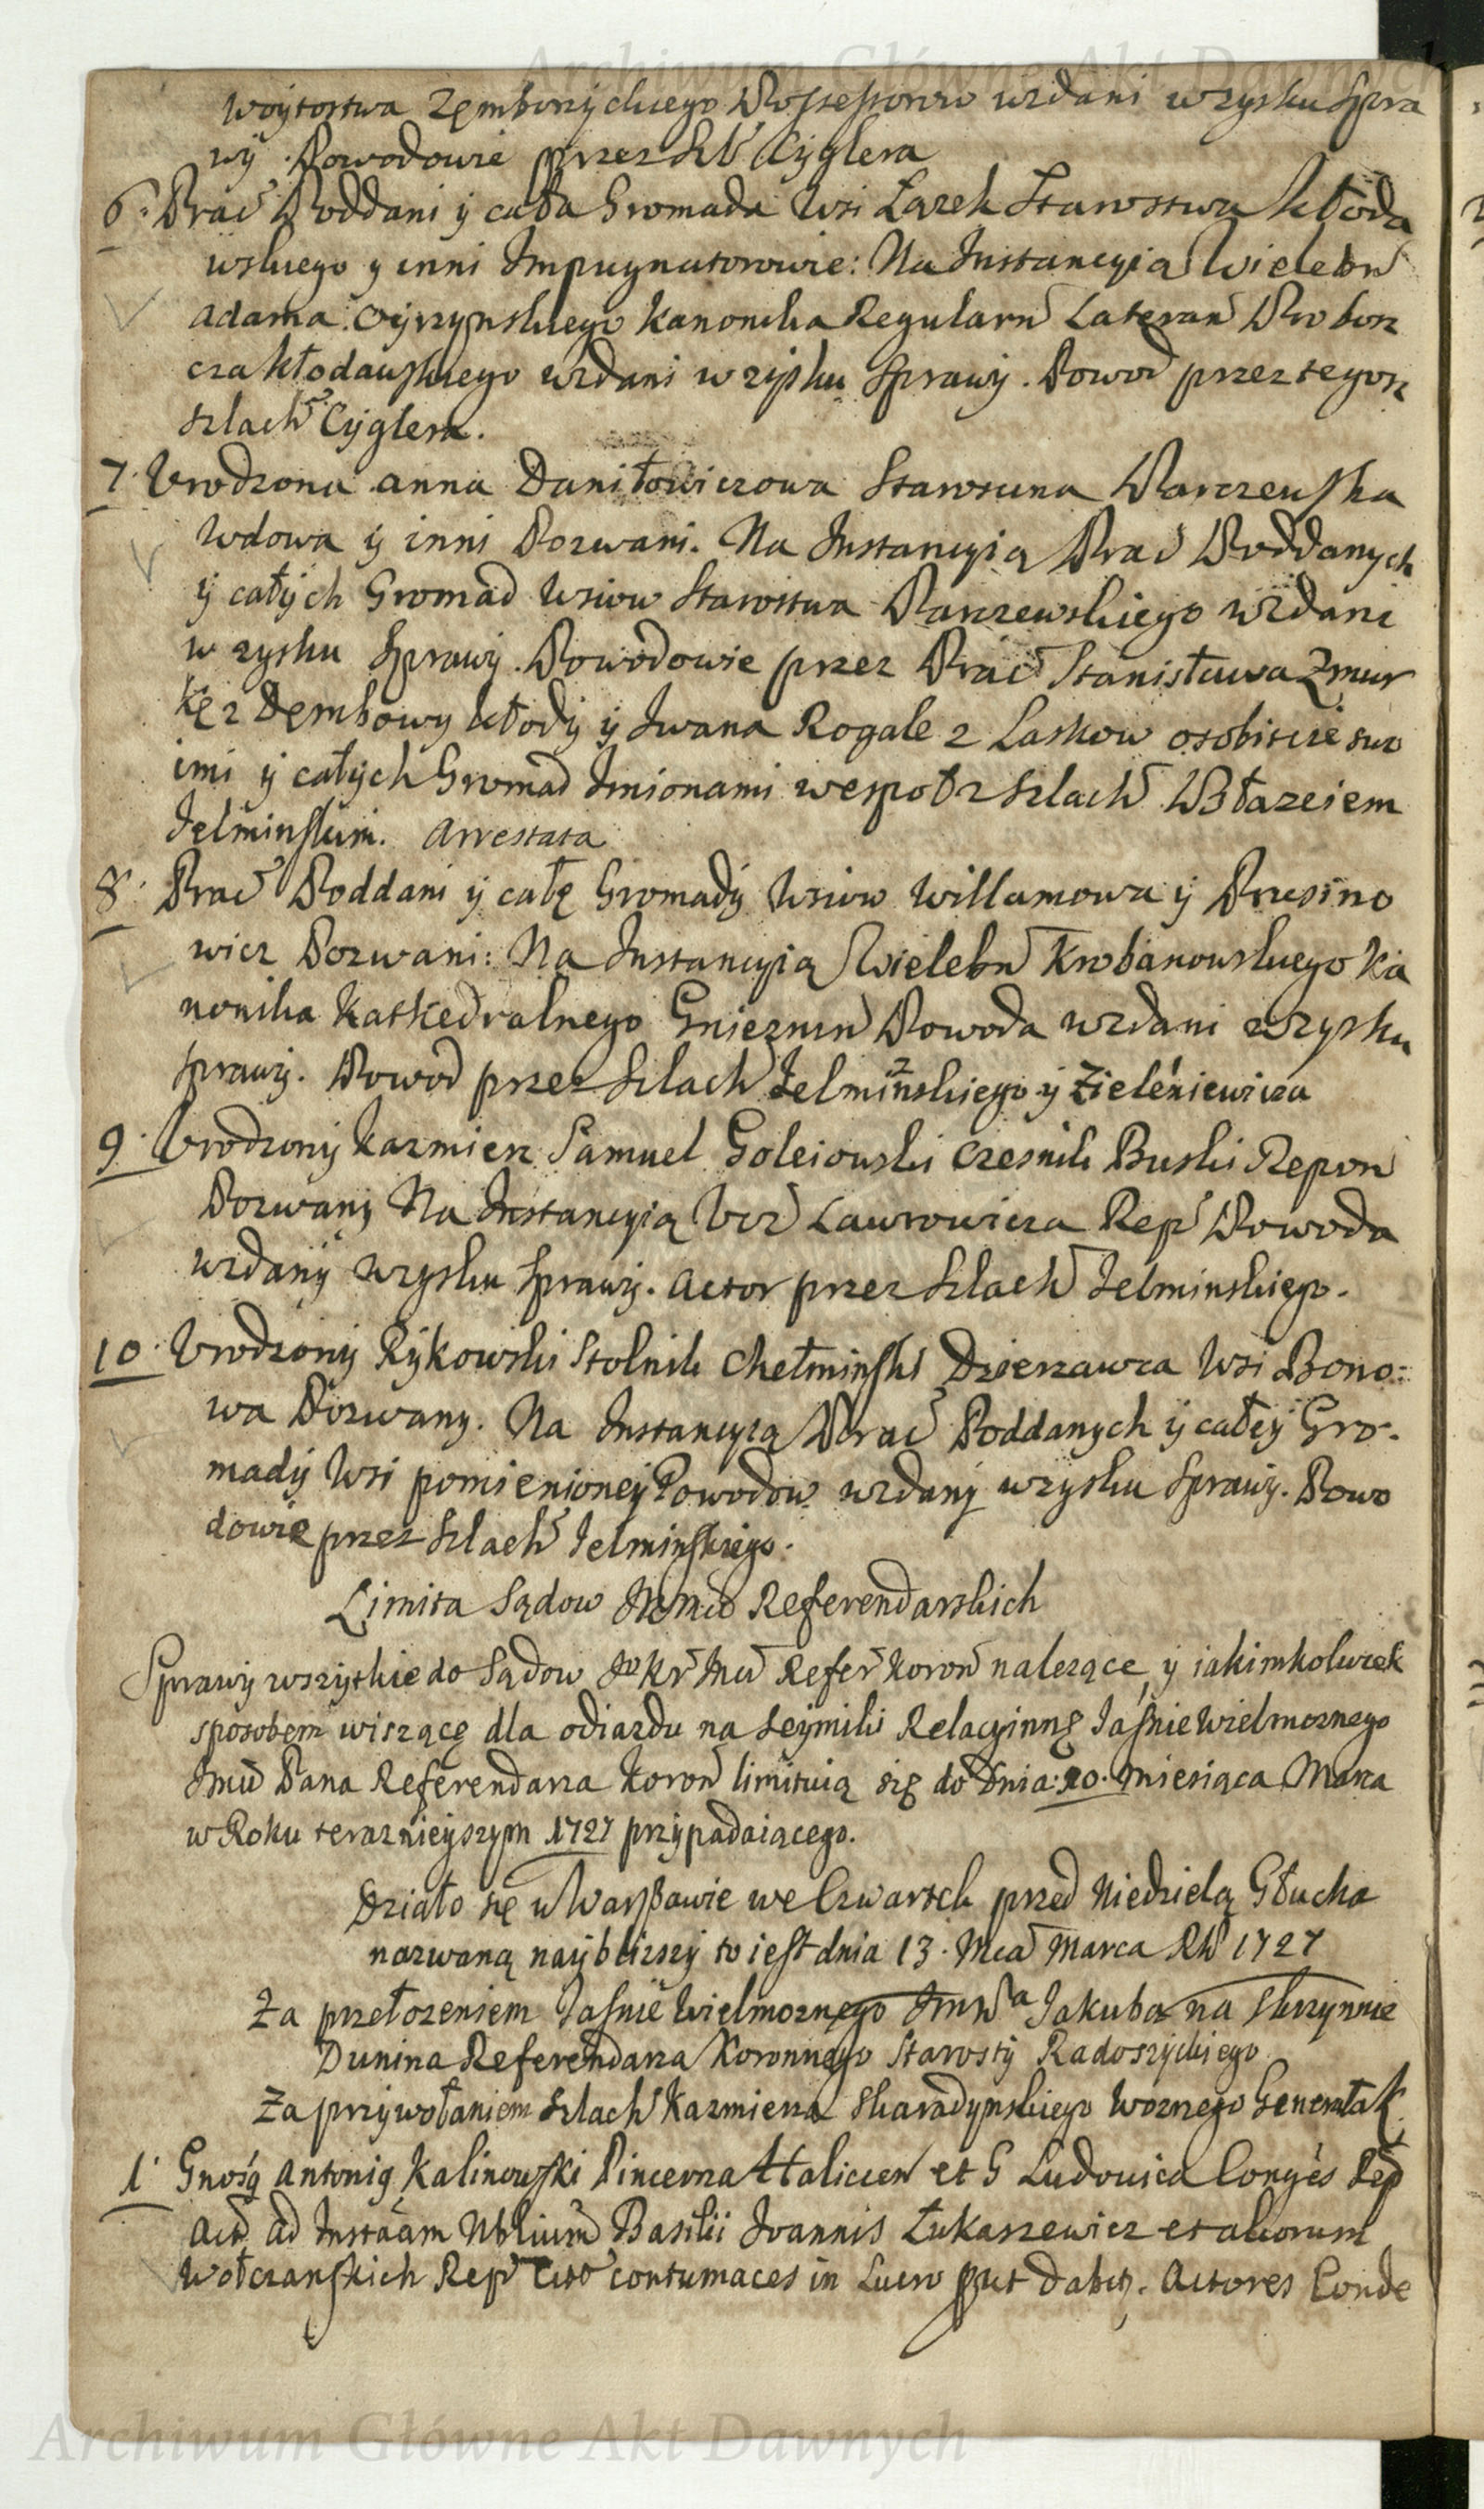 Archiwum Główne Akt Dawnych
Woytostwa Zemborzyckiego Possessorow wzdani wzysku Spra
wÿ. Powodowie przez Szl Cyglera
6. Prac Poddani ÿ cała Gromada Wsi Łązek Starostwa Kłoda
wskiego y inni Impugnatorowie: Na Instancyią Wielebn
Adama Kanonika Regularn Lateran Probosz
cza Kłodawskiego wzdani w zysku Sprawÿ. Powod przez tegosz
szlach Cyglera.
7. Urodzona Anna Daniłowiczowa Starscina Parczewska
Wdowa ÿ inni Pozwani. Na Instancyią Prac Poddanych
ÿ całÿch Gromad Wsiow Starostwa Parczewskiego wzdani
w zysku Sprawÿ. Powodowie przez Prac Stanisława Zmur
kę z Dembowy Kłody ÿ Iwana Rogale z Laskow osobiscie swo
imi ÿ całÿch Gromad Imionami wespoł z szlach Błazeiem
Jelminskim. Arrestata
8. Prac Poddani ÿ całę Gromadÿ Wsiow Willamowa ÿ Prusino
wicz Pozwani: Na Instancyią Wielebn Krobanowskiego Ka
nonika Kathedralnego Gnieznin Powoda wzdani wzysku
sprawÿ. Powod przez szlach Jelminskiego ÿ Zieleniewicza
9. Urodzonÿ Kazmierz Samuel Goleiowski Czesnik Buski Repon
Pozwany Na Instancyią Ur Laurowicza Rep Powoda
wzdanÿ wzysku Sprawÿ. Actor przez szlach Jelminskiego.
10. Urodzonÿ Rÿkowski Stolnik Chełminski Dzierzawca Wsi Bono:
wa Pozwany. Na Instancyią Prac Poddanych ÿ całeÿ Gro-
madÿ Wsi pomienioneÿ Powodow wzdanÿ wzysku Sprawÿ. Powo
dowie przez szlach Jelminskiego.
Limita Sądow Referendarskich
Sprawÿ wszytkie do Sądow JKr Mci Refer Koron nalezące, ÿ iakimkolwiek
sposobem wiszącę dla odiazdu na Seymiki Relacyinnę Jasnie Wielmoznego
Jmci Pana Referendarza Koron limituią się do Dnia: 20. Miesiąca Marca
w Roku teraznieyszym 1727 przÿpadaiącego.
Działo się w Warszawie we Czwartek przed Niedzielą Głucha
nazwaną nayblizszÿ to iest dnia 13. Mca Marca R 1727
Za przełozeniem Jasnie Wielmoznego Jakuba na Skrzynnie
Dunina Referendarza Koronnego Starosty Radoszyckiego
Za przywołaniem szlach Kazmierza Skaradynskiego Woznego Generała K
1. Antonig Kalinowski Pincerna Haliccen et G Ludovica Rep
Act ad Instaam Nbilium Basilii Joannis Łukaszewicz et aliorum
Wołczanskich Rep Citt contumaces in Lucro put dabtz. Actores Conde
Archiwum Główne Akt Dawnych